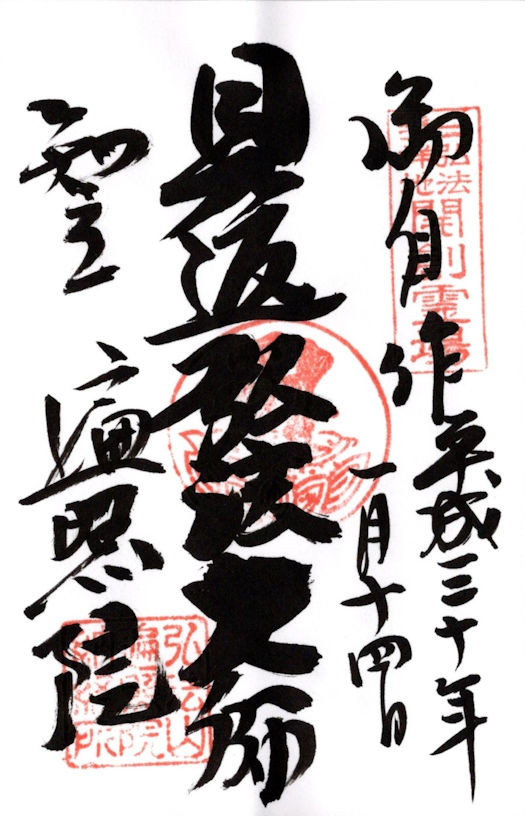 御自作
平成三十年
一月十四日
見返弘法大師
知立
遍照院
三弘法
開創霊場
弘法山
遍照院
納経所